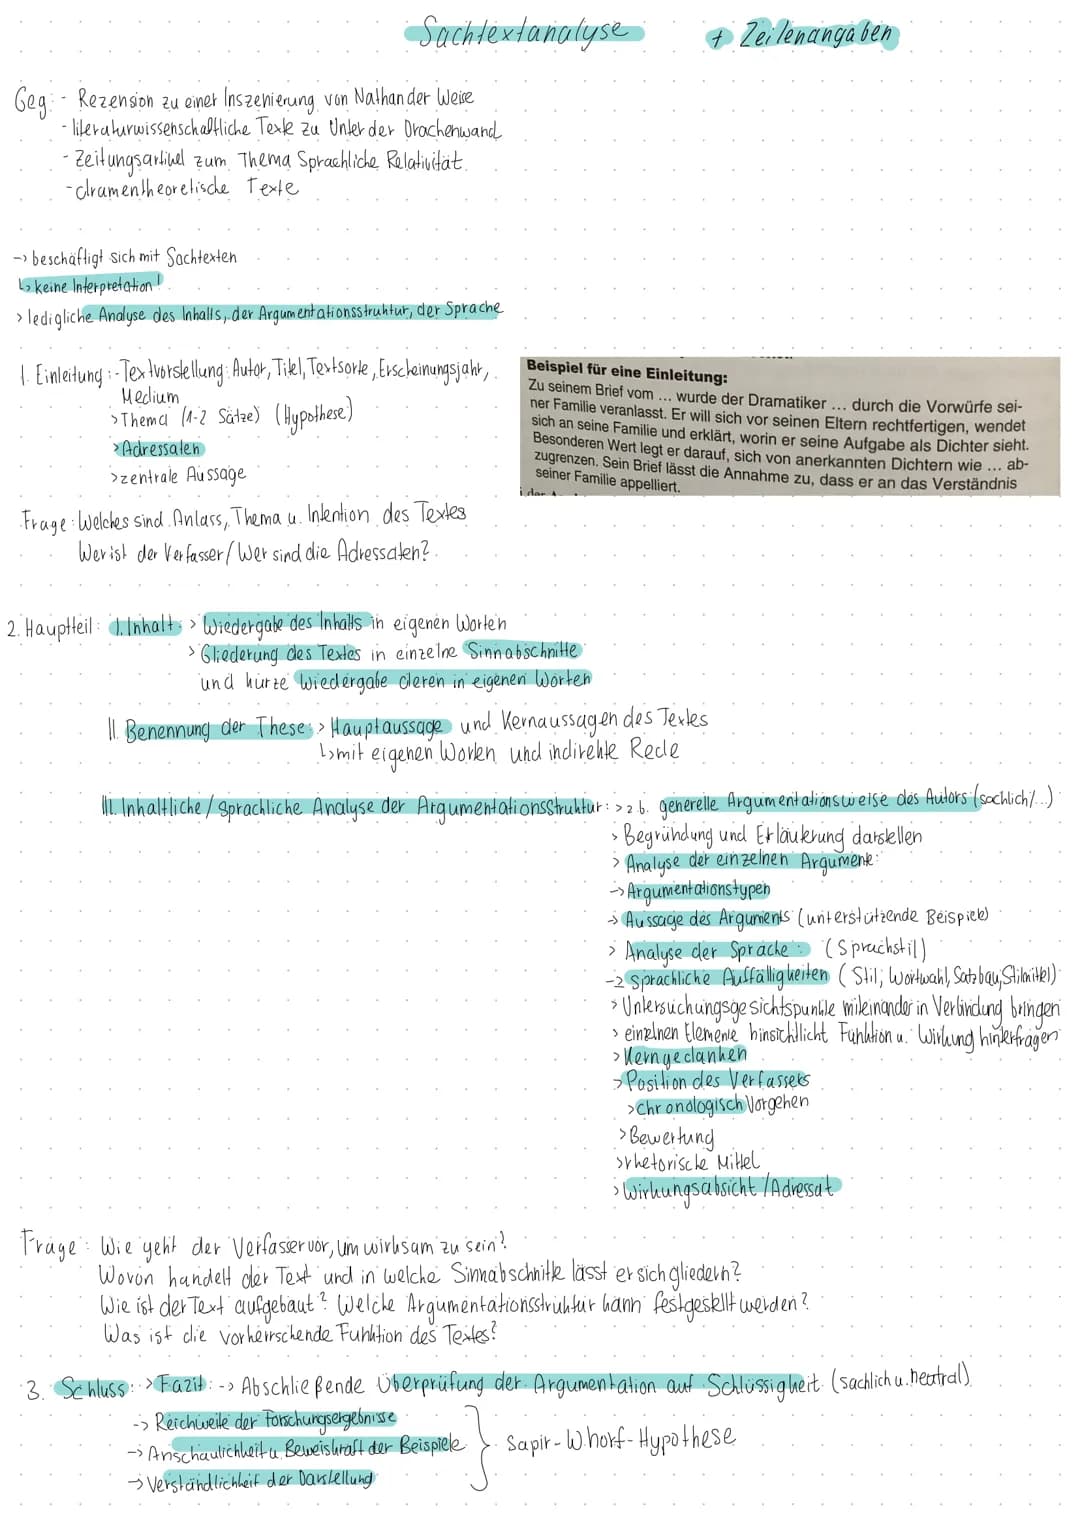 Sachtextanalyse + Zeilenangaben
Geg: - Rezension zu einer Inszenierung von Nathan der Weise
- literaturwissenschaftliche Texte zu Unter der Drachenwand
- Zeitungsartikel zum Thema Sprachliche Relativität
- dramentheoretische Texte
-> beschäftigt sich mit Sachtexten
↳ keine Interpretation!
> ledigliche Analyse des Inhalts, der Argumentationsstruktur, der Sprache
1. Einleitung: - Textvorstellung: Autor, Titel, Textsorte, Erscheinungsjahr,
Medium
> Thema (1-2 Sätze) (Hypothese)
> Adressaten
> zentrale Aussage
Beispiel für eine Einleitung:
Zu seinem Brief vom ... wurde der Dramatiker ... durch die Vorwürfe sei-
ner Familie veranlasst. Er will sich vor seinen Eltern rechtfertigen, wendet
sich an seine Familie und erklärt, worin er seine Aufgabe als Dichter sieht.
Besonderen Wert legt er darauf, sich von anerkannten Dichtern wie ... ab-
zugrenzen. Sein Brief lässt die Annahme zu, dass er an das Verständnis
seiner Familie appelliert.
Frage: Welches sind Anlass, Thema u. Intention des Textes
Wer ist der Verfasser/Wer sind die Adressaten?
2. Hauptteil: I. Inhalt: > Wiedergabe des Inhalts in eigenen Worten
> Gliederung des Textes in einzelne Sinnabschnitte
und kurze Wiedergabe deren in eigenen Worten
II. Benennung der These: > Hauptaussage und Kernaussagen des Textes
↳ mit eigenen Worten und indirekte Rede
III. Inhaltliche/sprachliche Analyse der Argumentationsstruktur: > z.b. generelle Argumentationsweise des Autors (sachlich/...)
> Begründung und Erläuterung darstellen
> Analyse der einzelnen Argumente:
-> Argumentationstypen
-> Aussage des Arguments (unterstützende Beispiele)
> Analyse der Sprache: (Sprachstil)
-> sprachliche Auffälligkeiten (Stil, Wortwahl, Satzbau, Stilmittel)
> Untersuchungsgesichtspunkte miteinander in Verbindung bringen
> einzelnen Elemente hinsichtlicht Funktion u. Wirkung hinterfragen
> Kerngedanken
> Position des Verfassers
> chronologisch Vorgehen
> Bewertung
> rhetorische Mittel
> Wirkungsabsicht/Adressat
Frage: Wie geht der Verfasser vor, um wirksam zu sein?
Wovon handelt der Text und in welche Sinnabschnitte lässt er sich gliedern?
Wie ist der Text aufgebaut? Welche Argumentationsstruktur kann festgestellt werden?
Was ist die vorherrschende Funktion des Textes?
3. Schluss: > Fazit: -> Abschließende Überprüfung der Argumentation auf Schlüssigkeit (sachlich u. neutral)
-> Reichweite der Forschungsergebnisse
-> Anschaulichkeit u. Beweiskraft der Beispiele } Sapir-Whorf-Hypothese
-> Verständlichkeit der Darstellung